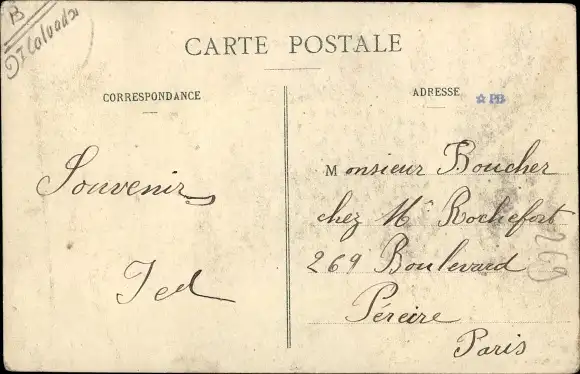 B
D7 Calvados
CARTE POSTALE
CORRESPONDANCE
Souvenir
Ted
ADRESSE
☆ PB
Monsieur Boucher
chez Mr Rochefort
269 Boulevard
Péreire
Paris
269